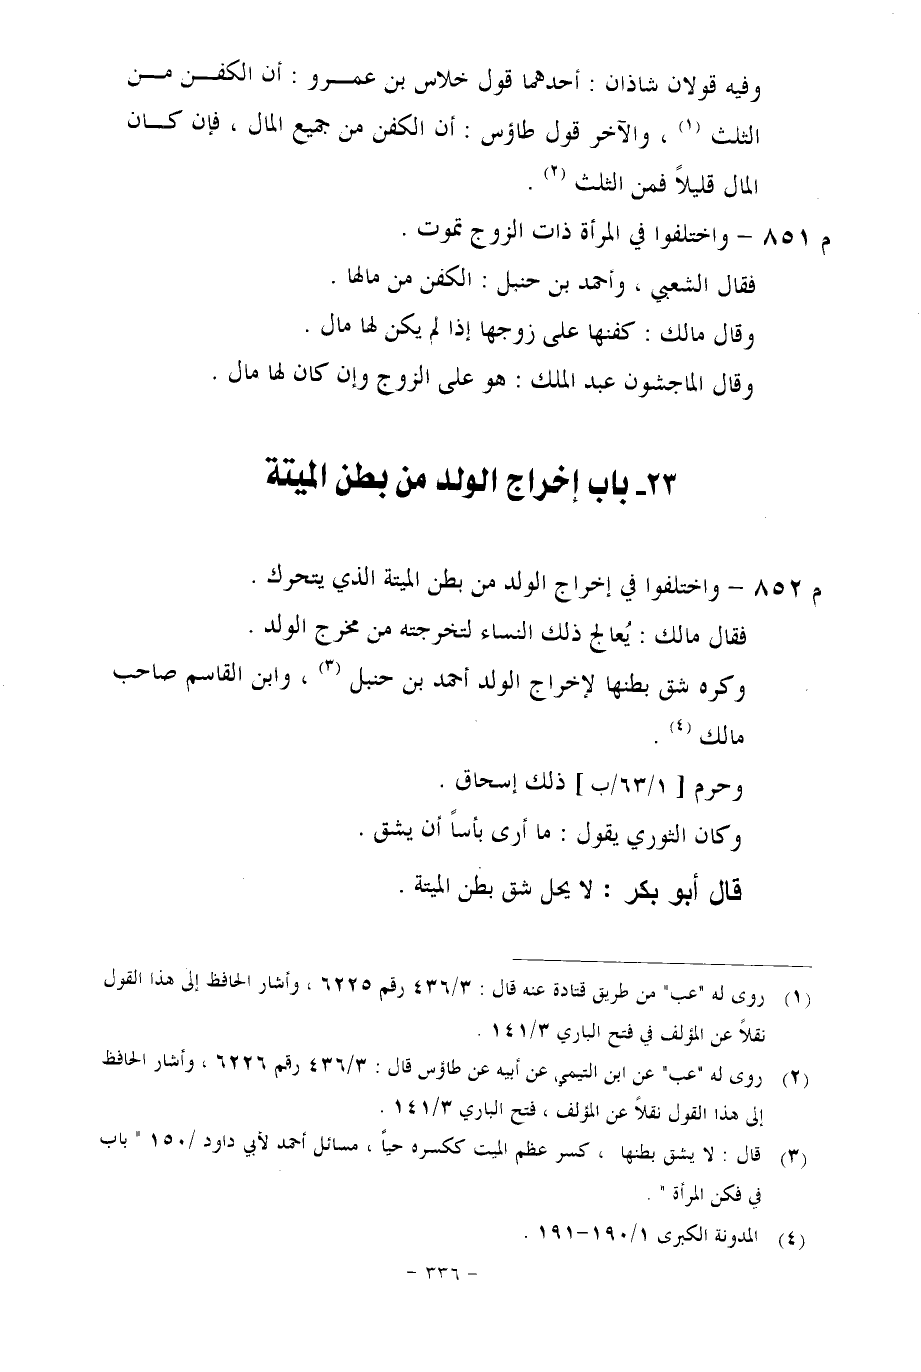 وفيه قولان شاذان : أحدهما قول خلاس بن عمـــرو : أن الكفـــن مـــن
الثلث (١) ، والآخر قول طاؤس : أن الكفن من جميع المال ، فإن كـــان
المال قليلاً فمن الثلث (٢) .
م ٨٥١ – واختلفوا في المرأة ذات الزوج تموت .
فقال الشعبي ، وأحمد بن حنبل : الكفن من مالها .
وقال مالك : كفنها على زوجها إذا لم يكن لها مال .
وقال الماجشون عبد الملك : هو على الزوج وإن كان لها مال .
٢٣ـ باب إخراج الولد من بطن الميتة
م ٨٥٢ – واختلفوا في إخراج الولد من بطن الميتة الذي يتحرك .
فقال مالك : يُعالج ذلك النساء لتخرجته من مخرج الولد .
وكره شق بطنها لإخراج الولد أحمد بن حنبل (٣) ، وابن القاسم صاحب
مالك (٤) .
وحرم [ ١/٦٣/ب ] ذلك إسحاق .
وكان الثوري يقول : ما أرى بأساً أن يشق .
قال أبو بكر : لا يحل شق بطن الميتة .
(١) روى له "عب" من طريق قتادة عنه قال : ٤٣٦/٣ رقم ٦٢٢٥ ، وأشار الحافظ إلى هذا القول
نقلاً عن المؤلف في فتح الباري ١٤١/٣ .
(٢) روى له "عب" عن ابن التيمي عن أبيه عن طاؤس قال : ٤٣٦/٣ رقم ٦٢٢٦ ، وأشار الحافظ
إلى هذا القول نقلاً عن المؤلف ، فتح الباري ١٤١/٣ .
(٣) قال : لا يشق بطنها ، كسر عظم الميت ككسره حياً ، مسائل أحمد لأبي داود /١٥٠ " باب
في فكن المرأة " .
(٤) المدونة الكبرى ١/١٩٠–١٩١ .
– ٣٣٦ –